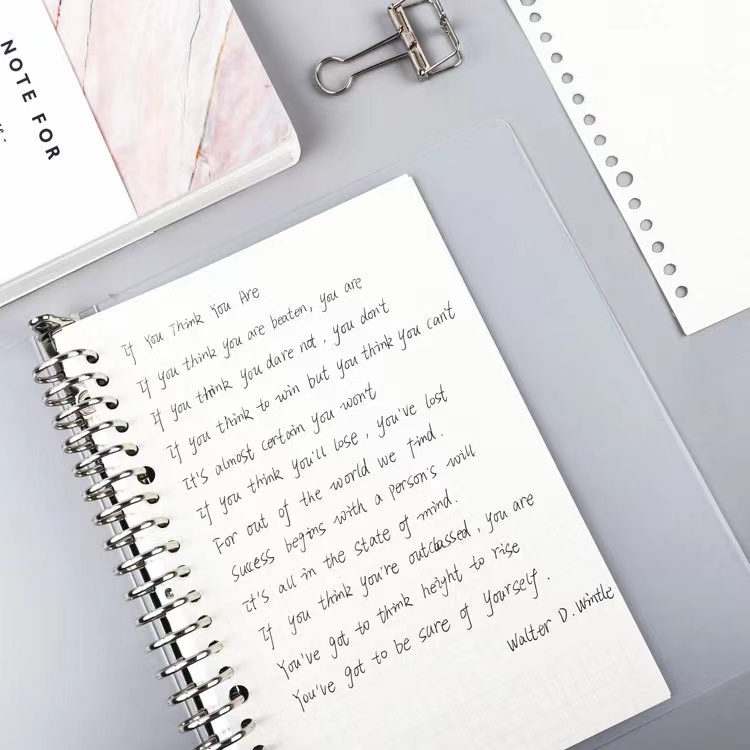 NOTE FOR
If You Think You Are
If you think you are beaten, you are
If you think you dare not, you don't
If you think to win but you think you can't
It's almost certain you won't
If you think you'll lose, you've lost
For out of the world we find.
Success begins with a person's will
it's all in the state of mind.
If you think you're outclassed, you are
You've got to think height to rise
You've got to be sure of yourself.
Walter D. Wintle